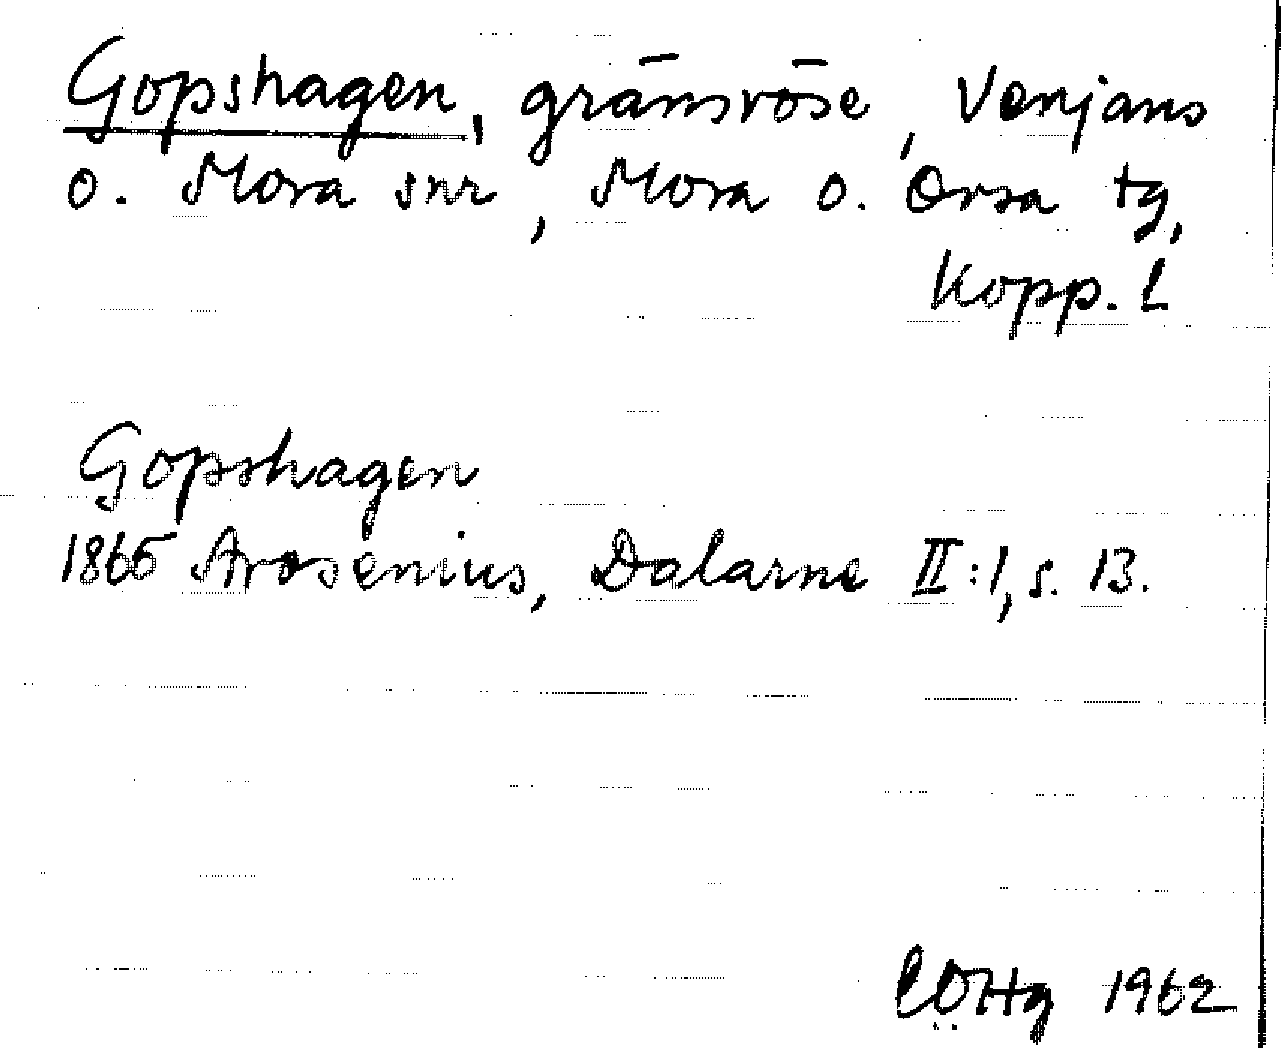 Gopshagen, gränsröse, Venjans
o. Mora snr, Mora o. Orsa tg,
Kopp. l
Gopshagen
1865 Arosenius, Dalarne II:1, s. 13.
1962